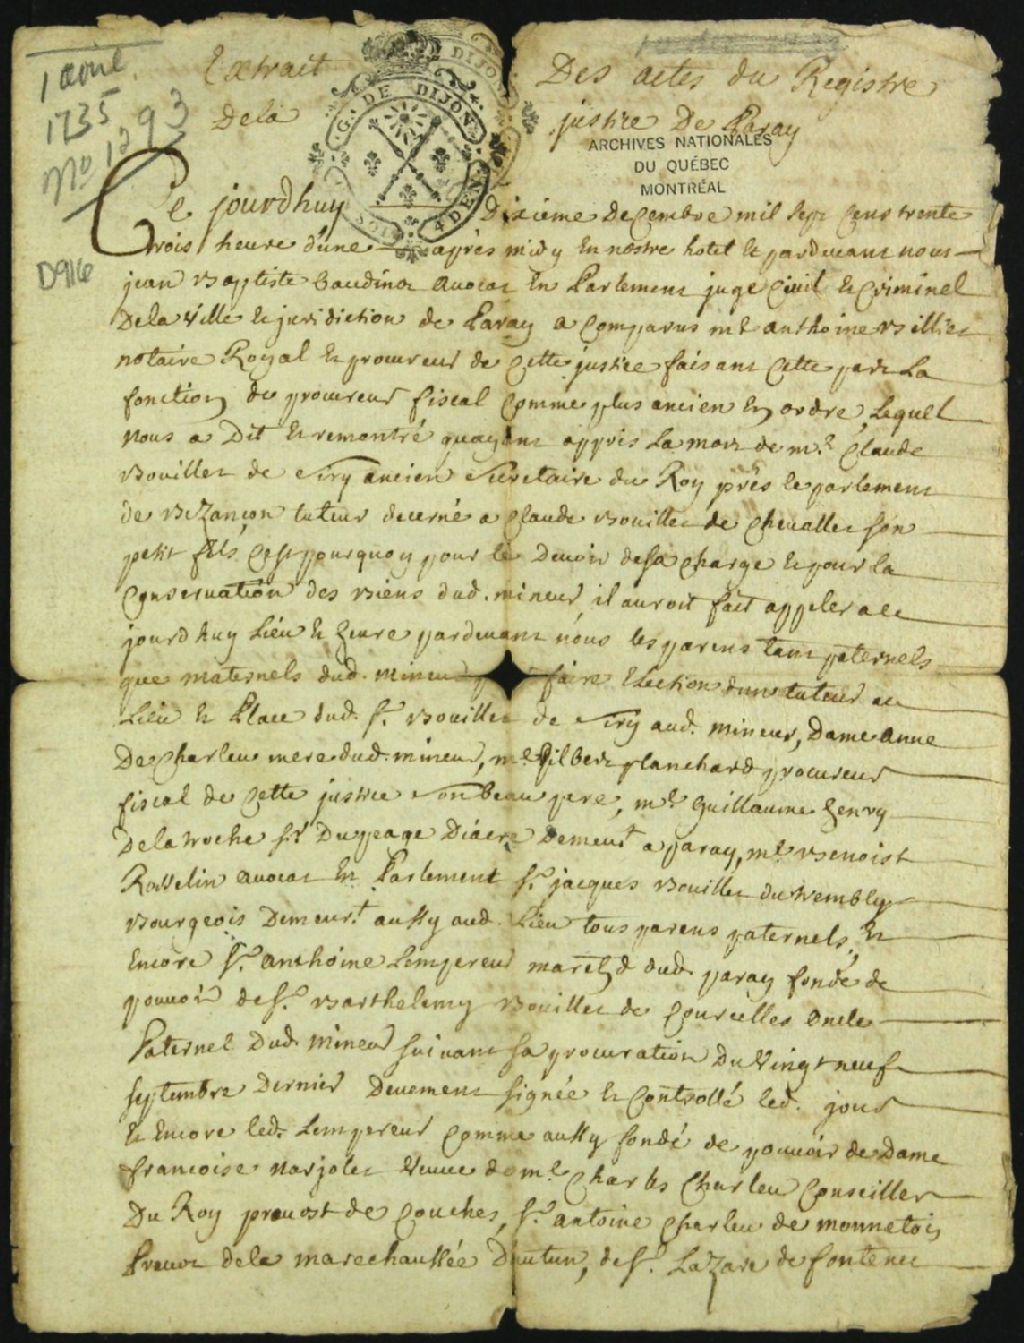 1 avril
1735
No 1293
D916
Extrait Des actes du Registre
dela justice De Paray
G. DE DIJON
ARCHIVES NATIONALES
DU QUÉBEC
MONTRÉAL
Ce jourdhuy Dixieme decembre mil sept cens trente
trois heure d'une apres midy En nostre hotel et pardevant nous
jean Baptiste Gaudinot avocat En Parlement juge Civil et Criminel
Dela ville et juridiction de Paray a comparus me anthoine Villier
notaire Royal et procureur de cette justice faisant cette part La
fonction de procureur fiscal Comme plus ancien en ordre, Lequel
nous a Dit et remontré quayant appris La mort de mr Claude
Bouillet de Siry ancien Secretaire du Roy près le parlement
de Bezançon tuteur decerné a Claude Bouillet de Chevallier son
petit fils C'est pourquoy pour le Devoir desa charge et pour la
Conservation des Biens dud. mineur il auroit fait appeler a ce
jourdhuy Lieu et heure pardevant nous les parens tant paternels
que maternels dud. mineur faire Election d'un tuteur au
Lieu et Place dud. Sr. Bouillet de Siry aud. mineur, Dame Anne
De Charleu mere dud. mineur, me Gilbert planchard procureur
fiscal de cette justice son beau pere, me Guillaume henry
Delaroche Sr Dupeage Diacre Demeurt a paray, me Benoist
Rosselin avocat En Parlement Sr. jacques Bouillet du
Bourgeois Demeurt aussy aud. Lieu tous parens paternels, Et
Encore Sr. anthoine Lempereur march̄d dud. paray fondé de
pouvoir de Sr. Barthelemy Bouillet de Courcelles oncle
Paternel Dud. mineur suivant sa procuration Du Vingt neuf
septembre Dernier Devement signée et Controllé led. jour
Et Encore led. Lempereur Comme aussy fondé de pouvoir de Dame
francoise narjolet Veuve de me Charles Charleu Conseiller
Du Roy prevost de Couches, Sr. antoine Charleu de monnetois
Prevot dela marechaussée Dautun, de Sr. Lazare de fontenet